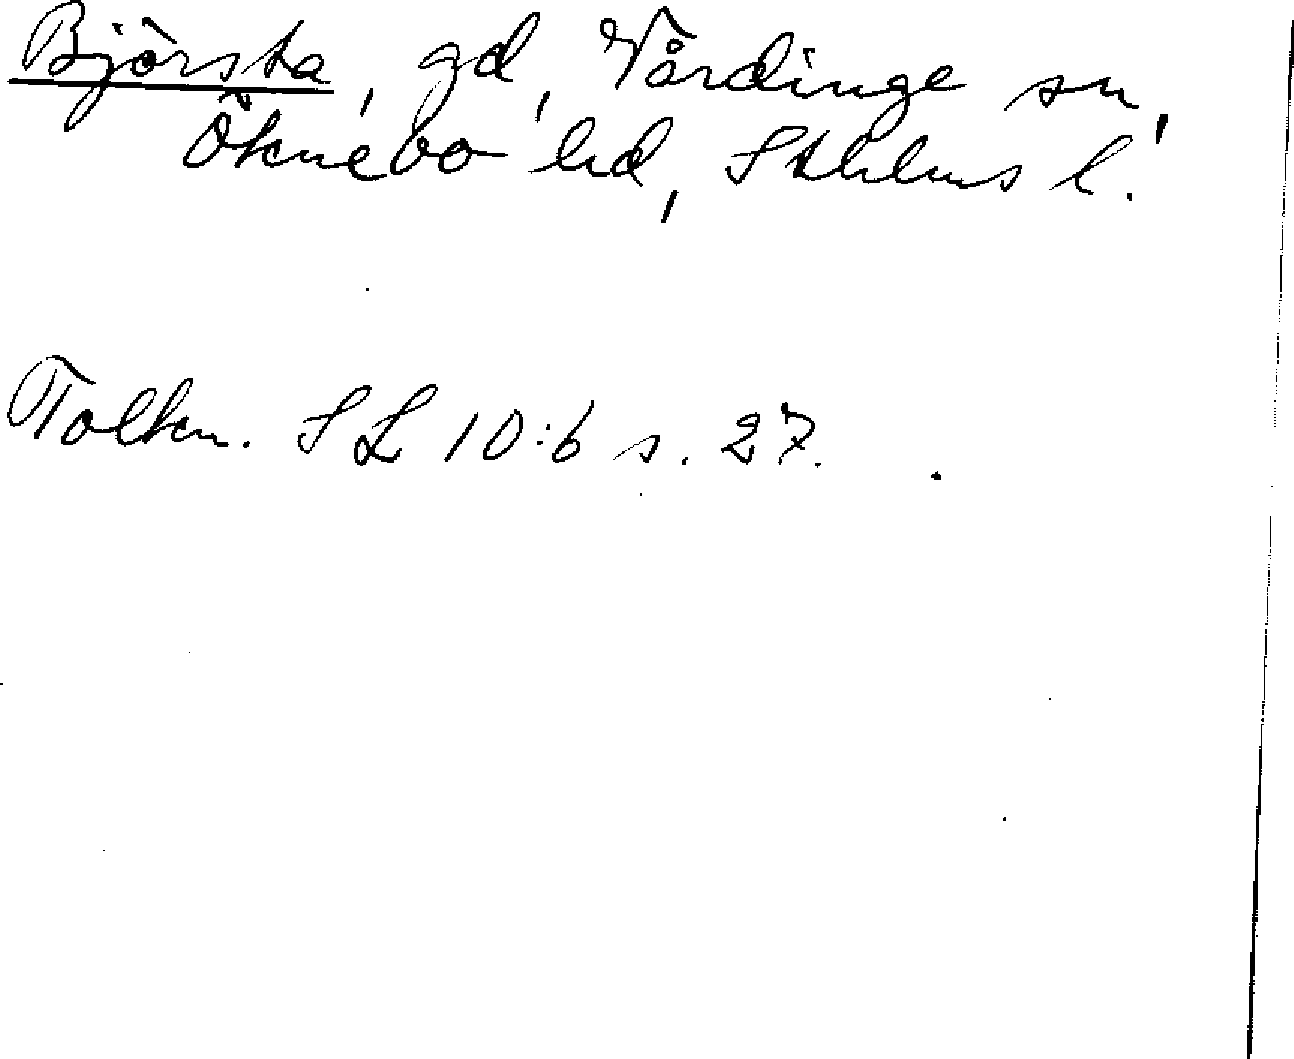 Björsta, gd, Vårdinge sn,
Öknebo hd, Sthlms l.
Tolkn. SL 10:6 s. 27.